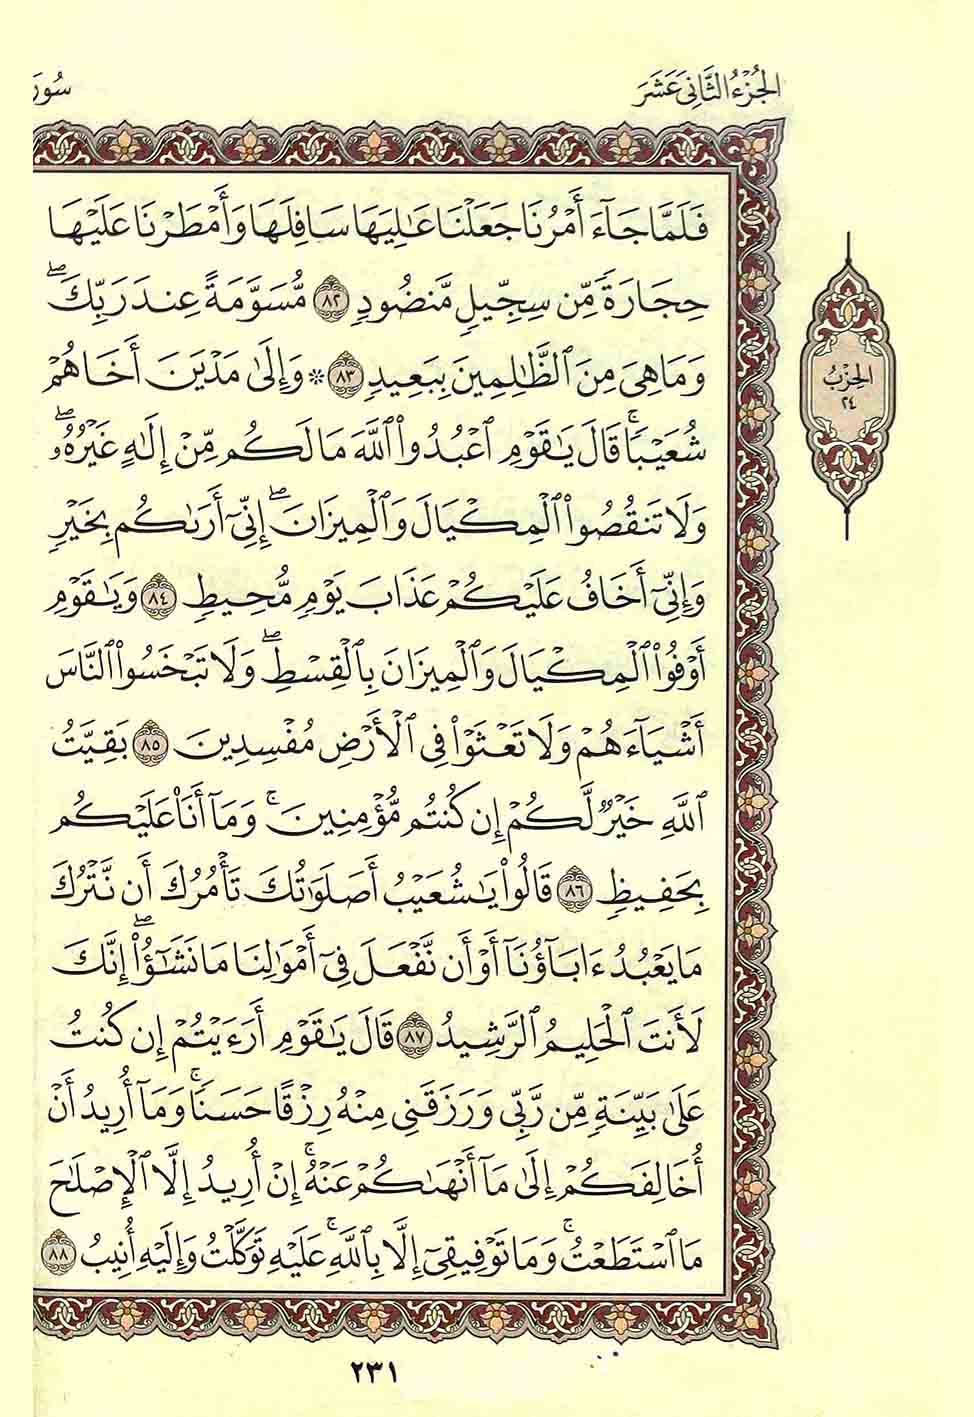 الجُزْءُ الثَّانِيَ عَشَرَ
سُورَ
فَلَمَّا جَآءَ أَمْرُنَا جَعَلْنَا عَٰلِيَهَا سَافِلَهَا وَأَمْطَرْنَا عَلَيْهَا
حِجَارَةً مِّن سِجِّيلٍ مَّنضُودٍ ٨٢ مُّسَوَّمَةً عِندَ رَبِّكَۖ
وَمَا هِيَ مِنَ ٱلظَّٰلِمِينَ بِبَعِيدٍ ٨٣ * وَإِلَىٰ مَدْيَنَ أَخَاهُمْ
شُعَيْبًاۚ قَالَ يَٰقَوْمِ ٱعْبُدُوا۟ ٱللَّهَ مَا لَكُم مِّنْ إِلَٰهٍ غَيْرُهُۥۖ
وَلَا تَنقُصُوا۟ ٱلْمِكْيَالَ وَٱلْمِيزَانَۖ إِنِّىٓ أَرَىٰكُم بِخَيْرٍ
وَإِنِّىٓ أَخَافُ عَلَيْكُمْ عَذَابَ يَوْمٍ مُّحِيطٍ ٨٤ وَيَٰقَوْمِ
أَوْفُوا۟ ٱلْمِكْيَالَ وَٱلْمِيزَانَ بِٱلْقِسْطِۖ وَلَا تَبْخَسُوا۟ ٱلنَّاسَ
أَشْيَآءَهُمْ وَلَا تَعْثَوْا۟ فِى ٱلْأَرْضِ مُفْسِدِينَ ٨٥ بَقِيَّتُ
ٱللَّهِ خَيْرٌ لَّكُمْ إِن كُنتُم مُّؤْمِنِينَۚ وَمَآ أَنَا۠ عَلَيْكُم
بِحَفِيظٍ ٨٦ قَالُوا۟ يَٰشُعَيْبُ أَصَلَوٰتُكَ تَأْمُرُكَ أَن نَّتْرُكَ
مَا يَعْبُدُ ءَابَآؤُنَآ أَوْ أَن نَّفْعَلَ فِىٓ أَمْوَٰلِنَا مَا نَشَٰٓؤُا۟ۖ إِنَّكَ
لَأَنتَ ٱلْحَلِيمُ ٱلرَّشِيدُ ٨٧ قَالَ يَٰقَوْمِ أَرَءَيْتُمْ إِن كُنتُ
عَلَىٰ بَيِّنَةٍ مِّن رَّبِّى وَرَزَقَنِى مِنْهُ رِزْقًا حَسَنًاۚ وَمَآ أُرِيدُ أَنْ
أُخَالِفَكُمْ إِلَىٰ مَآ أَنْهَىٰكُمْ عَنْهُۚ إِنْ أُرِيدُ إِلَّا ٱلْإِصْلَٰحَ
مَا ٱسْتَطَعْتُۚ وَمَا تَوْفِيقِىٓ إِلَّا بِٱللَّهِۚ عَلَيْهِ تَوَكَّلْتُ وَإِلَيْهِ أُنِيبُ ٨٨
الحِزْبُ
٢٤
٢٣١